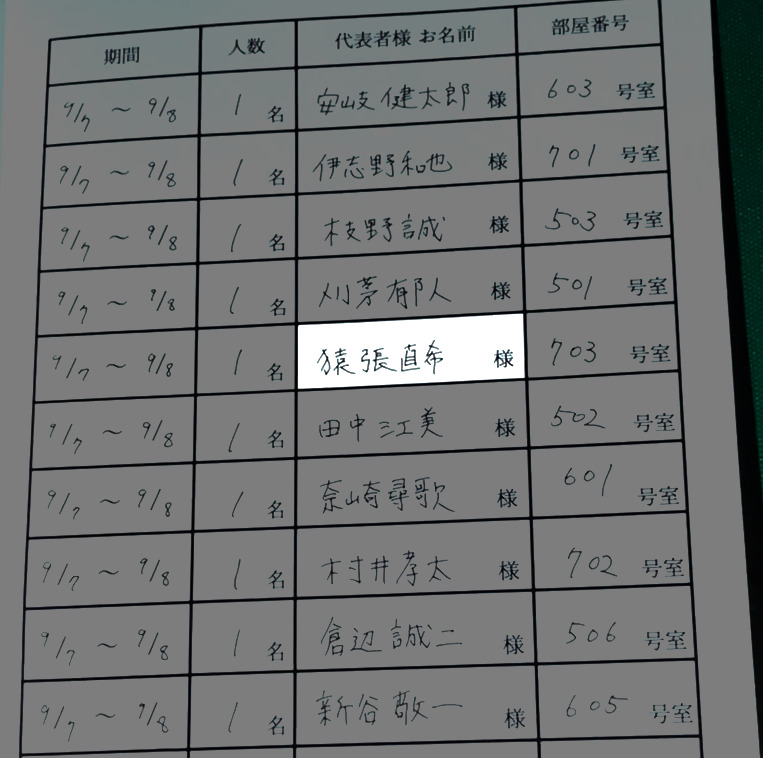 期間 人数 代表者様 お名前 部屋番号
9/7 ～ 9/8 1名 安岐健太郎 様 603 号室
9/7 ～ 9/8 1名 伊志野和也 様 701 号室
9/7 ～ 9/8 1名 枝野誠 様 503 号室
9/7 ～ 9/8 1名 刈茅有郁人 様 501 号室
9/7 ～ 9/8 1名 猿張直希 様 703 号室
9/7 ～ 9/8 1名 田中江美 様 502 号室
9/7 ～ 9/8 1名 奈崎尋歌 様 601 号室
9/7 ～ 9/8 1名 村井孝太 様 702 号室
9/7 ～ 9/8 1名 倉辺誠二 様 506 号室
9/7 ～ 9/8 1名 新谷敬一 様 605 号室